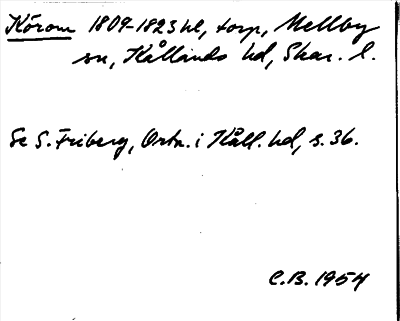 Körom 1809-1823 hl, torp, Mellby
sn, Kållands hd, Skar. l.
Se S. Friberg, Ortn. i Kåll. hd, s. 36.
C.B. 1954